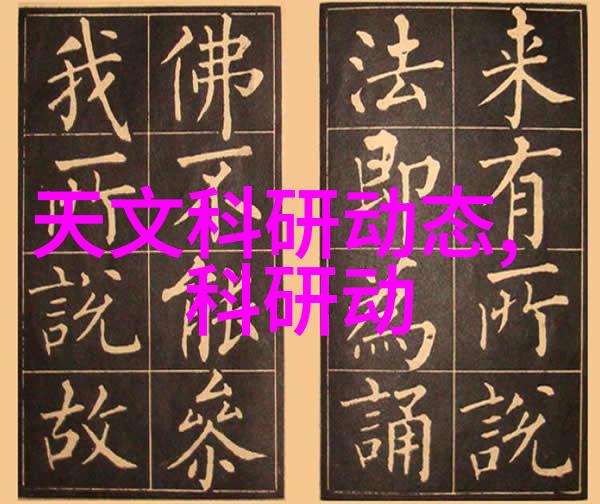 来有所說
法即為誦
佛不能參
我所說故
天文科研动态,
科研动